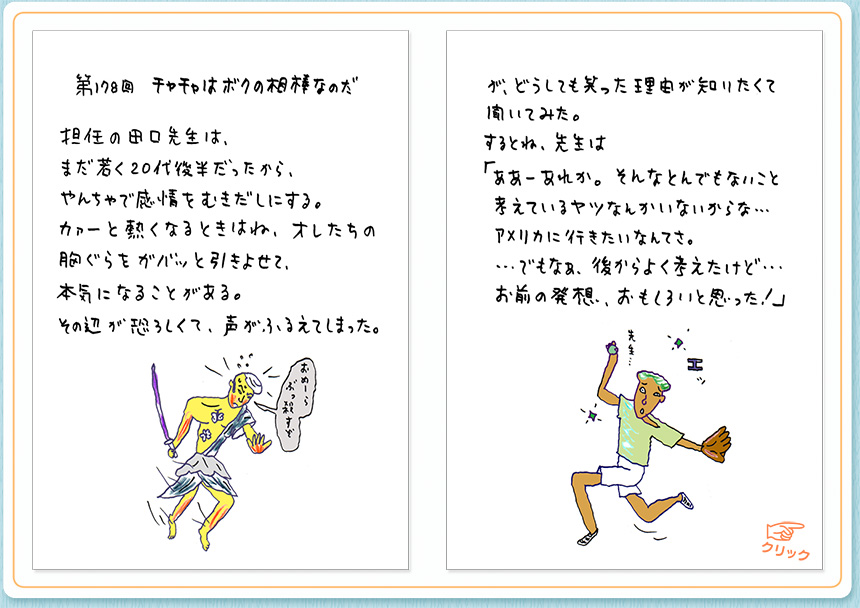 第178回 チャチャはボクの相棒なのだ
担任の田口先生は、
まだ若く20代後半だったから、
やんちゃで感情をむきだしにする。
カァーと熱くなるときはね、オレたちの
胸ぐらをガバッと引きよせて、
本気になることがある。
その辺が恐ろしくて、声がふるえてしまった。
おめーら
ぶっ殺すぞ
が、どうしても笑った理由が知りたくて
聞いてみた。
するとね、先生は
「ああーあれか。そんなとんでもないこと
考えているヤツなんかいないからな…
アメリカに行きたいなんてさ。
…でもなぁ、後からよく考えたけど…
お前の発想、おもしろいと思った!」
先生…
エッ
クリック